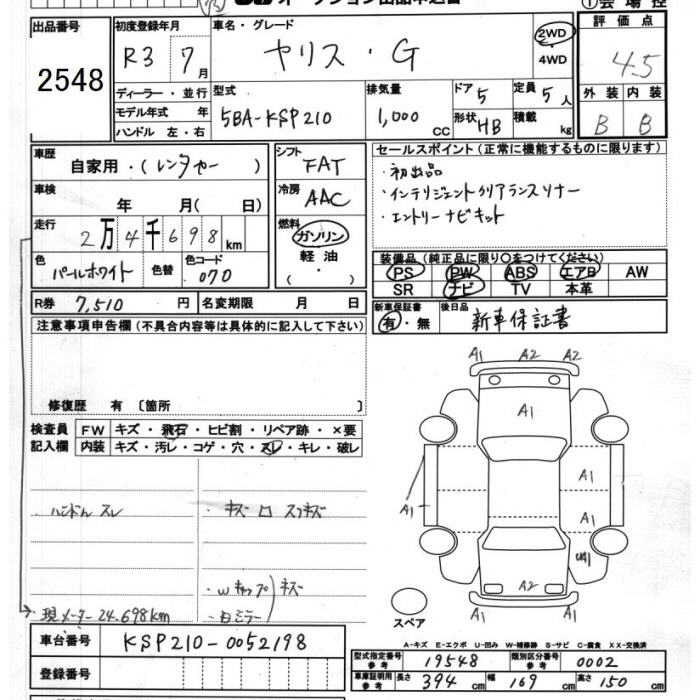 出品番号
2548
初度登録年月
R3 7月
車名・グレード
ヤリス・G
2WD
4WD
評価点
4.5
ディーラー・並行
モデル年式 年
ハンドル 左・右
型式
5BA-KSP210
排気量
1,000 CC
ドア 5
定員 5人
形状 HB
積載 kg
外装 内装
B B
車歴
自家用・(レンタカー)
車検
年 月(日)
走行
2万4千698km
色
パールホワイト
色替
色コード
070
シフト
FAT
冷房
AAC
燃料
ガソリン
軽油
( )
セールスポイント(正常に機能するものに限ります)
・初出品
・インテリジェントクリアランスソナー
・エントリーナビキット
装備品(純正品に限り○をつけてください)
PS PW ABS エアB AW
SR ナビ TV 本革
R券 7,510円
名変期限 月 日
新車保証書
有・無
後日品
新車保証書
注意事項申告欄(不具合内容等は具体的に記入して下さい)
修復歴 有〔箇所
検査員
記入欄
FW キズ・飛石・ヒビ割・リペア跡・×要
内装 キズ・汚レ・コゲ・穴・スレ・キレ・破レ
・ハンドルスレ
・キズ ロ スリキズ
・Wキャップ
・白ミラー
キズ
・現メーター24.698km
A1 A2 A2
A1
A1
A1
A1
A2
A1 A1
スペア
車台番号
KSP210-0052198
登録番号
A-キズ E-エクボ U-凹み W-補修跡 S-サビ C-腐食 XX-交換済
型式指定番号
参考
19548
類別区分番号
参考
0002
車庫証明用
参考
長さ 394cm
幅 169cm
高さ 150cm